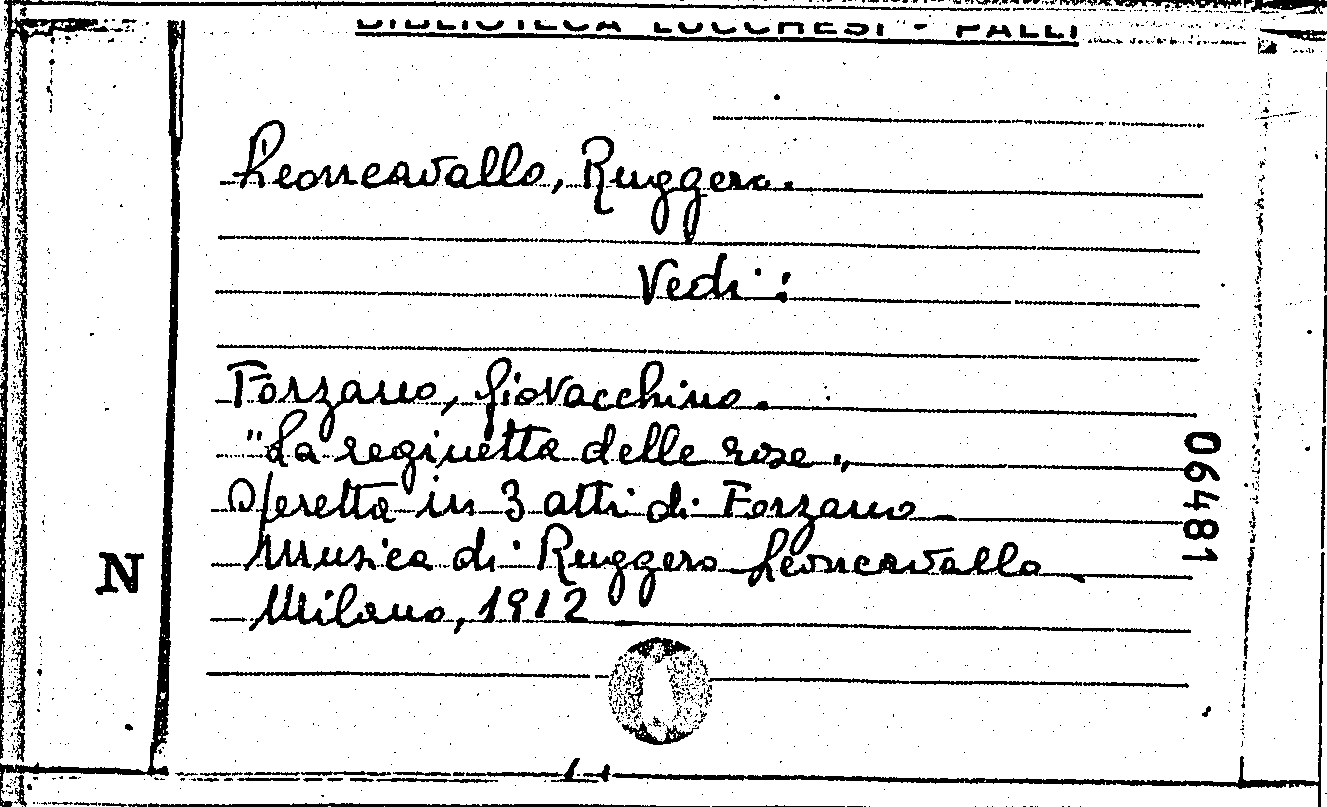 BIBLIOTECA LUCCHESI - PALLI
Leoncavallo, Ruggero.
Vedi:
Forzano, Giovacchino.
"La reginetta delle rose„
Operetta in 3 atti di Forzano
Musica di Ruggero Leoncavallo
Milano, 1912
N
06481